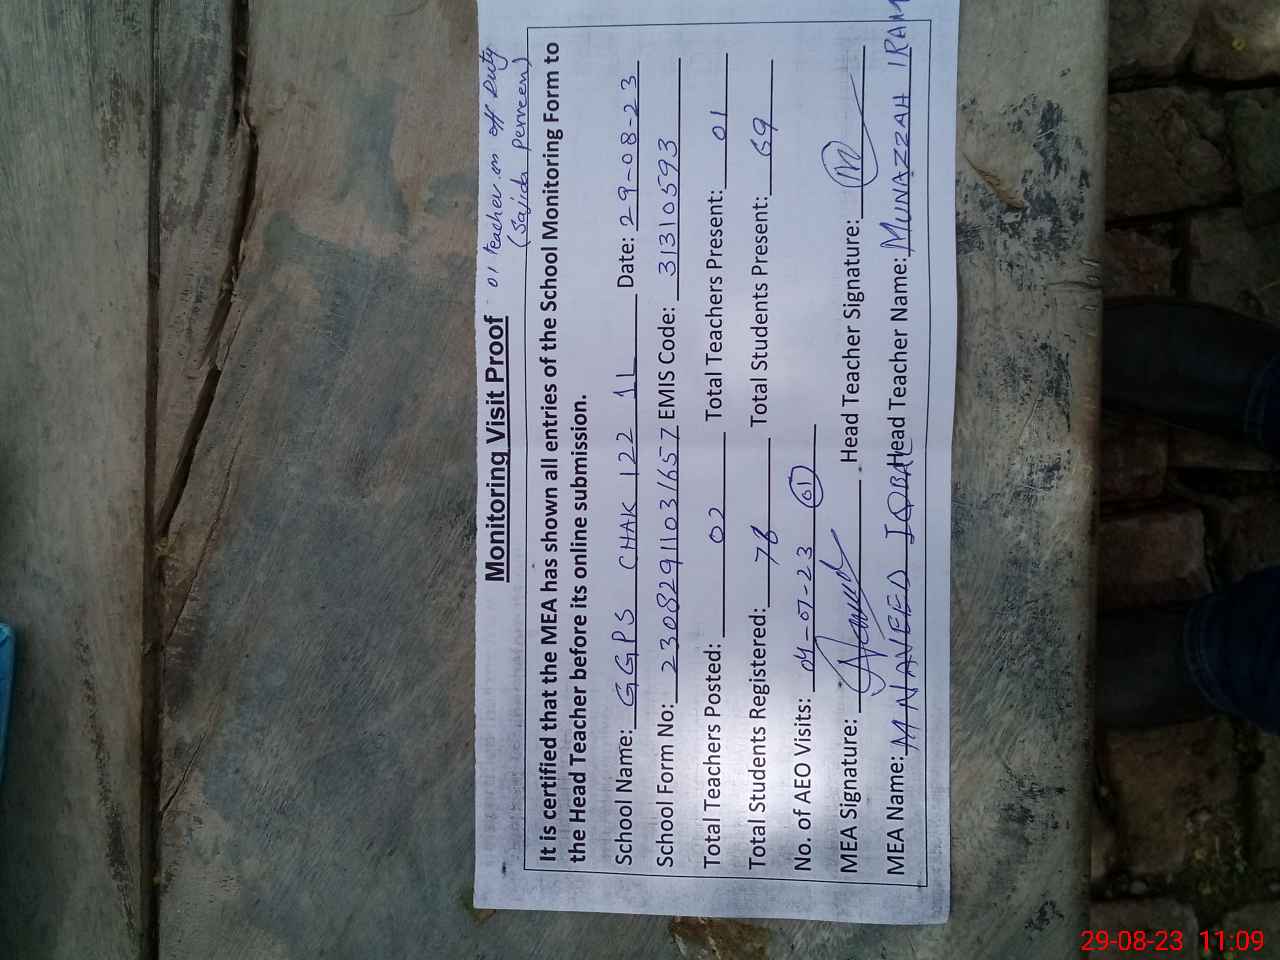 Monitoring Visit Proof
01 teacher on off Duty
(Sajida Perveen)
It is certified that the MEA has shown all entries of the School Monitoring Form to
the Head Teacher before its online submission.
School Name: GGPS CHAK 122 1L Date: 29-08-23
School Form No: 23082911031657 EMIS Code: 31310593
Total Teachers Posted: 02 Total Teachers Present: 01
Total Students Registered: 78 Total Students Present: 69
No. of AEO Visits: 04-07-23 (01)
MEA Signature: Head Teacher Signature:
MEA Name: M NAVEED IQBAL Head Teacher Name: MUNAZZAH IRAM
29-08-23 11:09